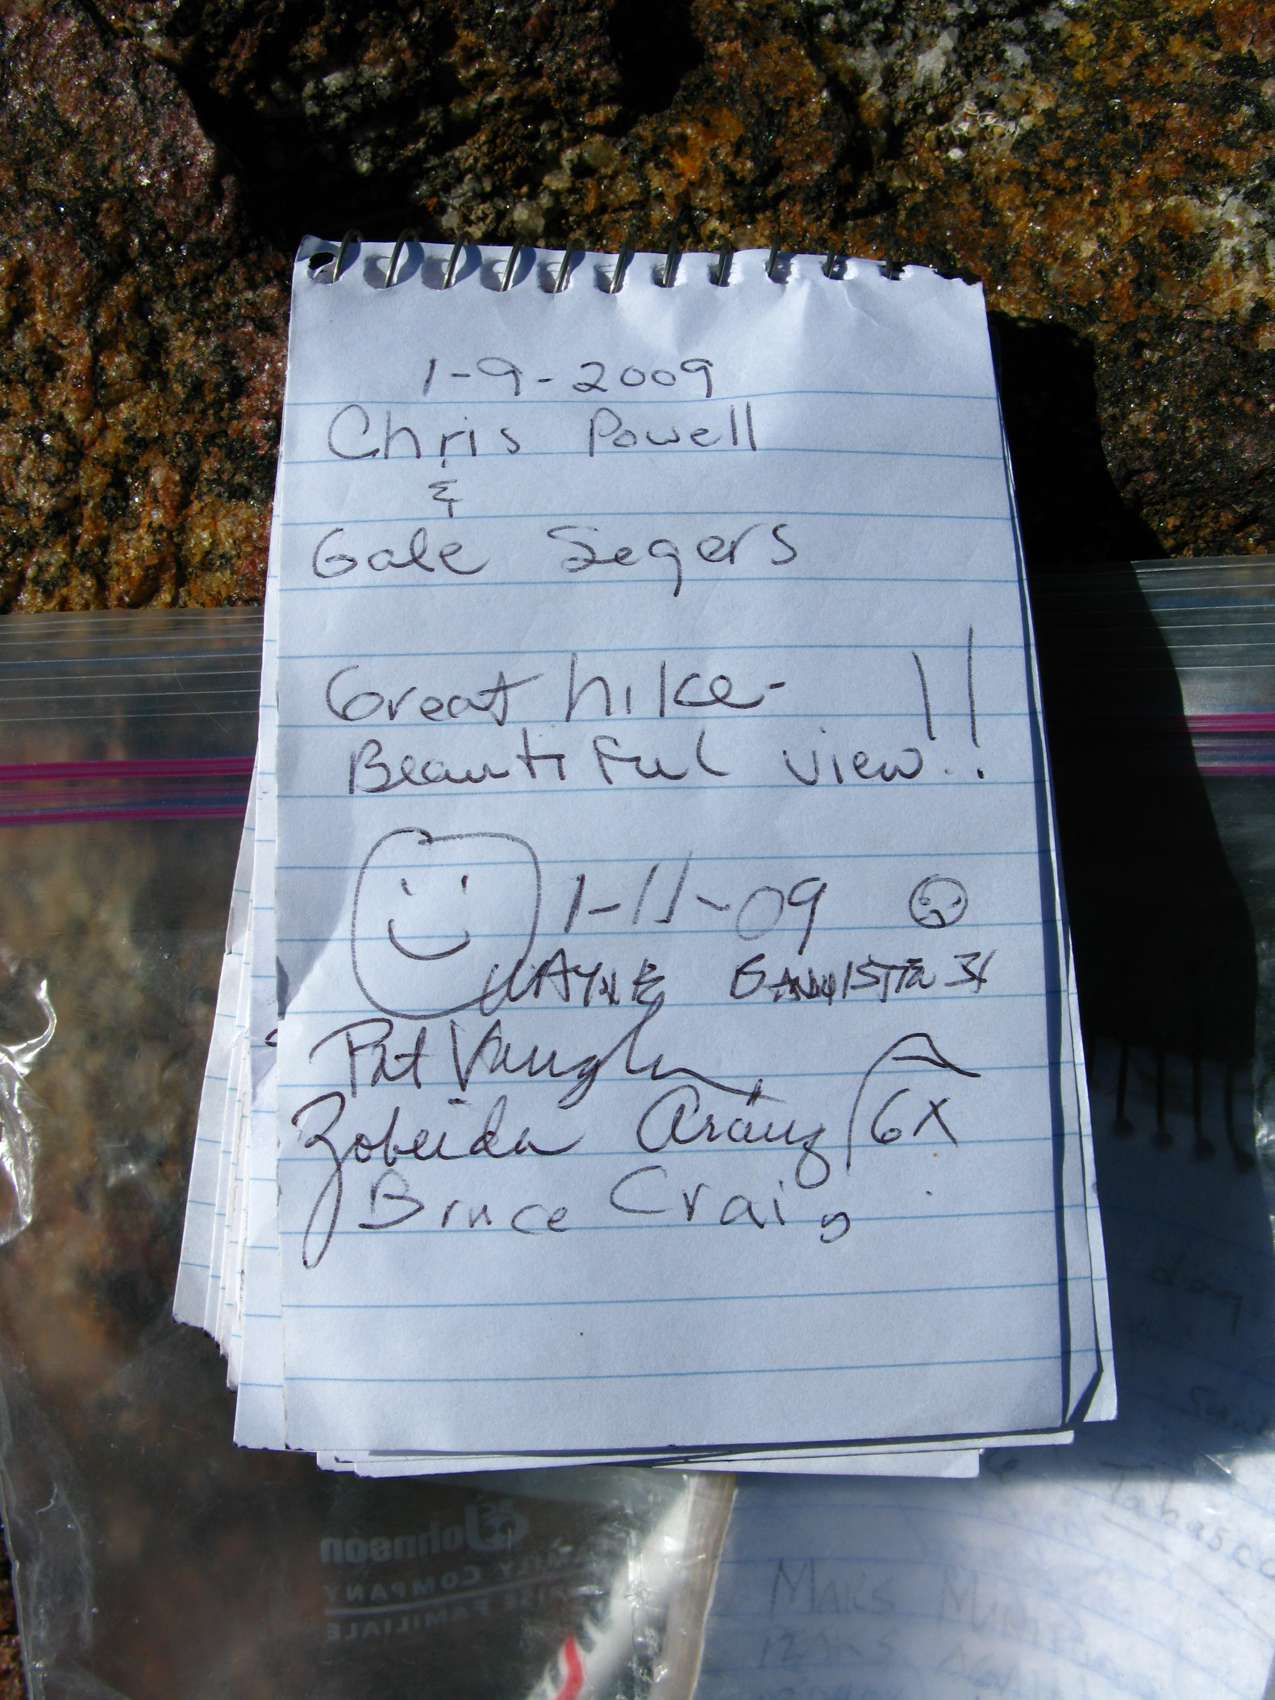 1-9-2009
Chris Powell
&
Gale Segers
Great hike-
Beautiful view!!
1-11-09
WAYNE
Pat Vaughn
Zobeida Arauz 6X
Bruce Craig
Johnson
FAMILY COMPANY
FAMILIALE
Tabasco